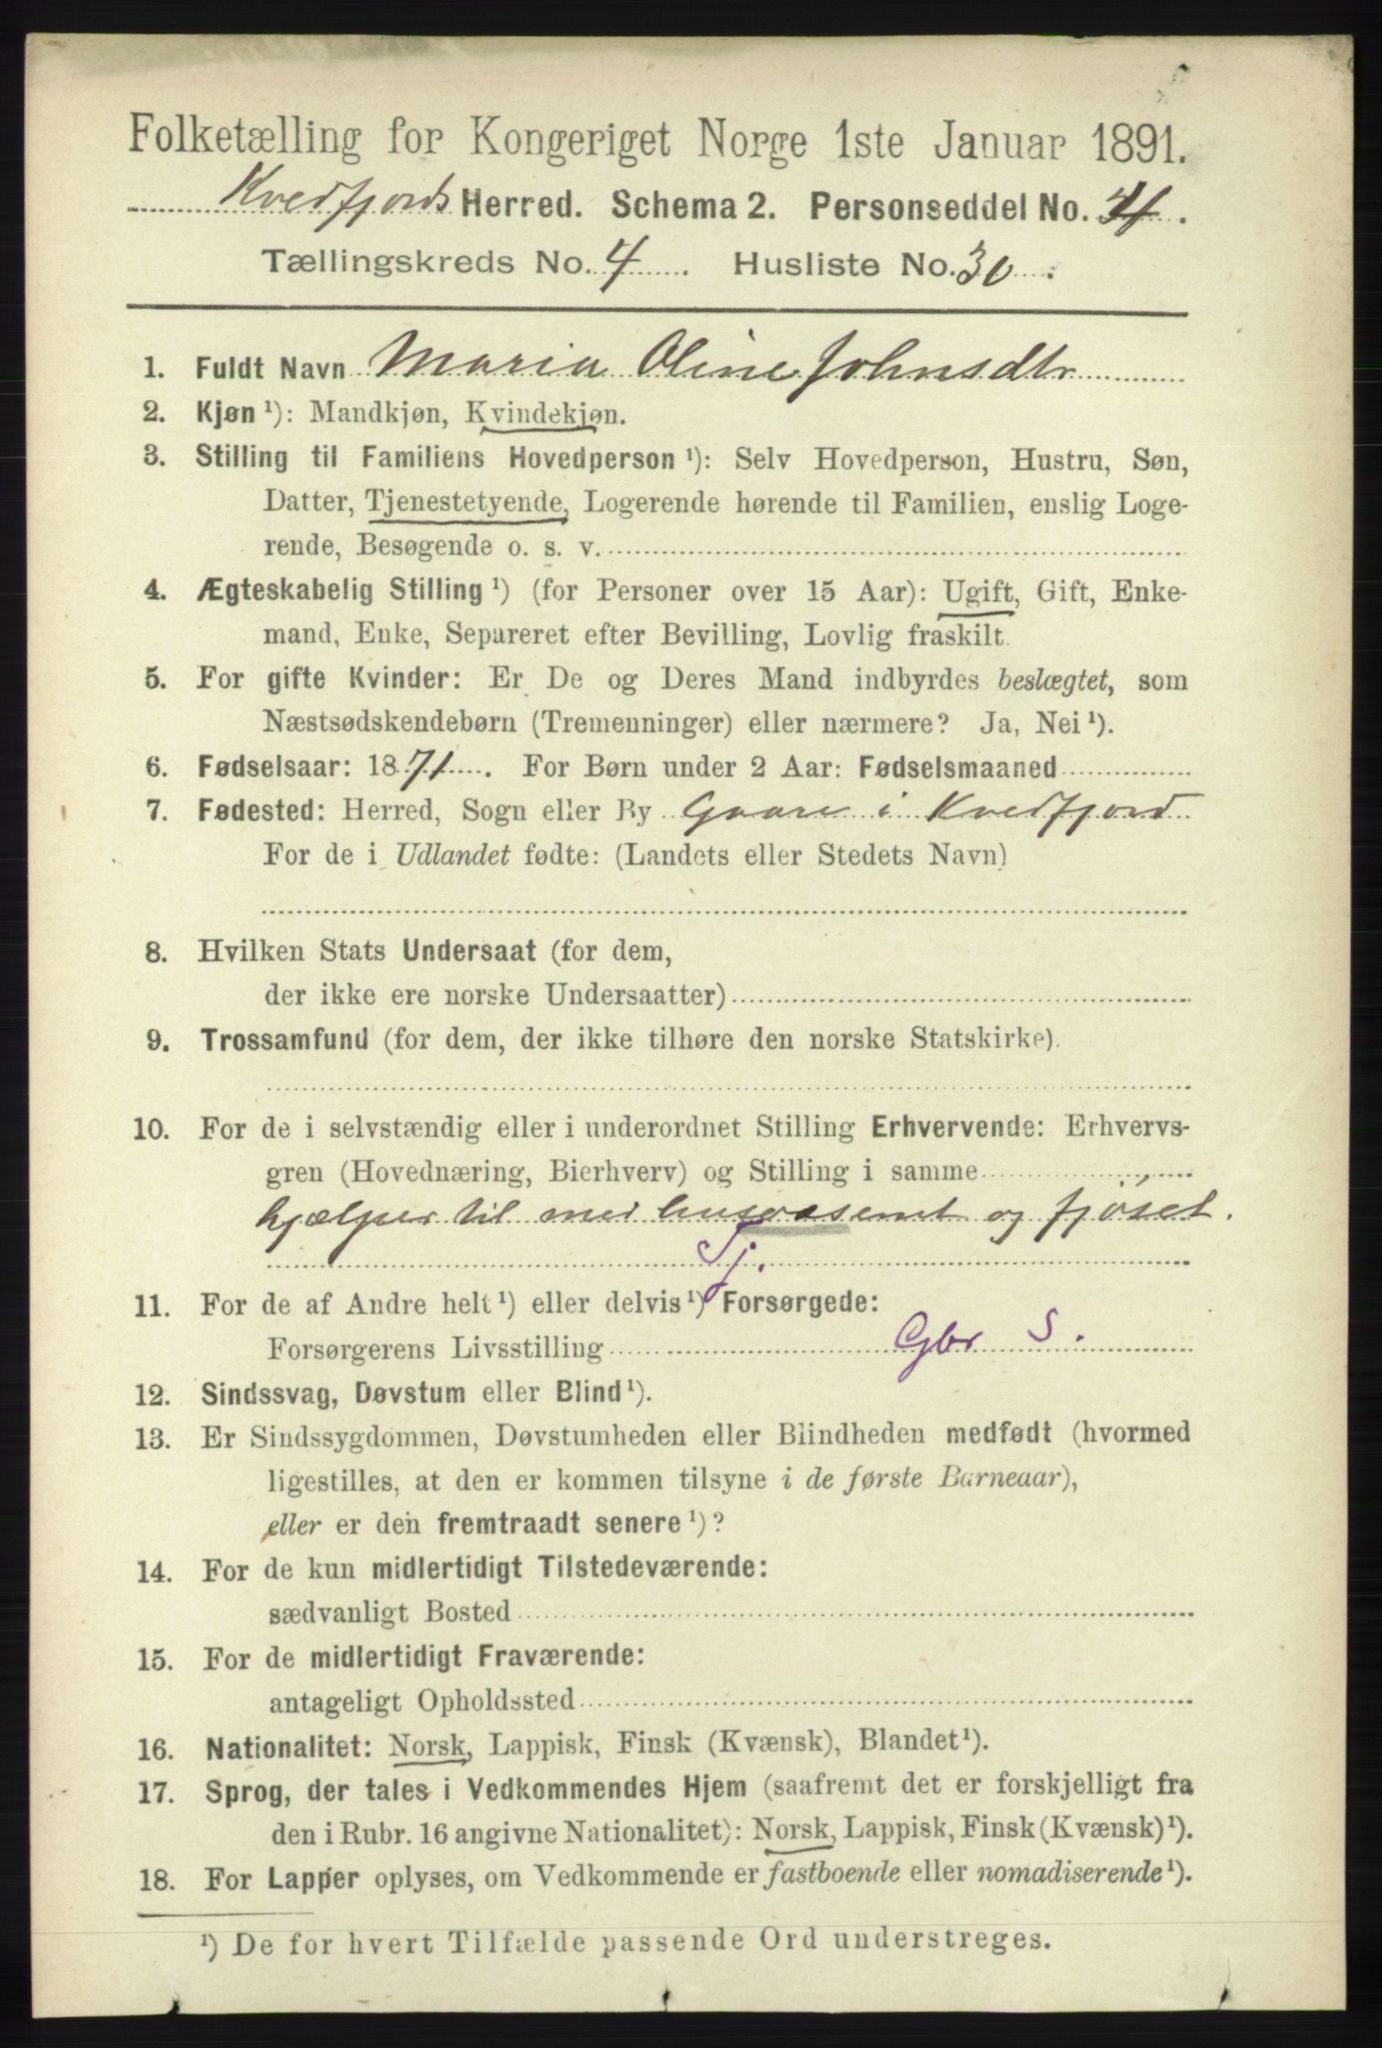 Folketælling for Kongeriget Norge 1ste Januar 1891.
Kvedfjords Herred. Schema 2. Personseddel No.
Tællingskreds No. 4. Husliste No. 30.
1. Fuldt Navn Maria Oline Johnsdtr
2. Kjøn ¹): Mandkjøn, Kvindekjøn.
3. Stilling til Familiens Hovedperson ¹): Selv Hovedperson, Hustru, Søn,
Datter, Tjenestetyende, Logerende hørende til Familien, enslig Loge-
rende, Besøgende o. s. v.
4. Ægteskabelig Stilling ¹) (for Personer over 15 Aar): Ugift, Gift, Enke-
mand, Enke, Separeret efter Bevilling, Lovlig fraskilt.
5. For gifte Kvinder: Er De og Deres Mand indbyrdes beslægtet, som
Næstsødskendebørn (Tremenninger) eller nærmere? Ja, Nei ¹).
6. Fødselsaar: 1871. For Børn under 2 Aar: Fødselsmaaned
7. Fødested: Herred, Sogn eller By Gaare i Kvedfjord
For de i Udlandet fødte: (Landets eller Stedets Navn)
8. Hvilken Stats Undersaat (for dem,
der ikke ere norske Undersaatter)
9. Trossamfund (for dem, der ikke tilhøre den norske Statskirke).
10. For de i selvstændig eller i underordnet Stilling Erhvervende: Erhvervs-
gren (Hovednæring, Bierhverv) og Stilling i samme
hjælper til med husvæsenet og fjöset.
Tj.
11. For de af Andre helt ¹) eller delvis ¹) Forsørgede:
Forsørgerens Livsstilling Gbr S.
12. Sindssvag, Døvstum eller Blind ¹).
13. Er Sindssygdommen, Døvstumheden eller Blindheden medfødt (hvormed
ligestilles, at den er kommen tilsyne i de første Barneaar),
eller er den fremtraadt senere ¹)?
14. For de kun midlertidigt Tilstedeværende:
sædvanligt Bosted
15. For de midlertidigt Fraværende:
antageligt Opholdssted
16. Nationalitet: Norsk, Lappisk, Finsk (Kvænsk), Blandet ¹).
17. Sprog, der tales i Vedkommendes Hjem (saafremt det er forskjelligt fra
den i Rubr. 16 angivne Nationalitet): Norsk, Lappisk, Finsk (Kvænsk) ¹).
18. For Lapper oplyses, om Vedkommende er fastboende eller nomadiserende ¹).
¹) De for hvert Tilfælde passende Ord understreges.